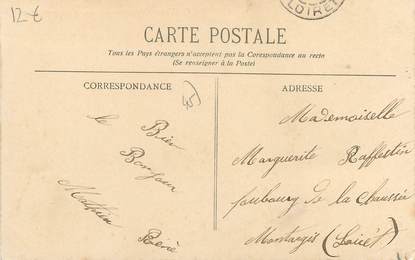 12-€
LOIRET
CARTE POSTALE
Tous les Pays étrangers n'acceptent pas la Corespondance au recto
(Se renseigner à la Poste)
CORRESPONDANCE
45
le Bien
Bonjour
Mathieu
René
ADRESSE
Mademoiselle
Marguerite Raffestin
faubourg de la Chaussée
Montargis (Loiret)